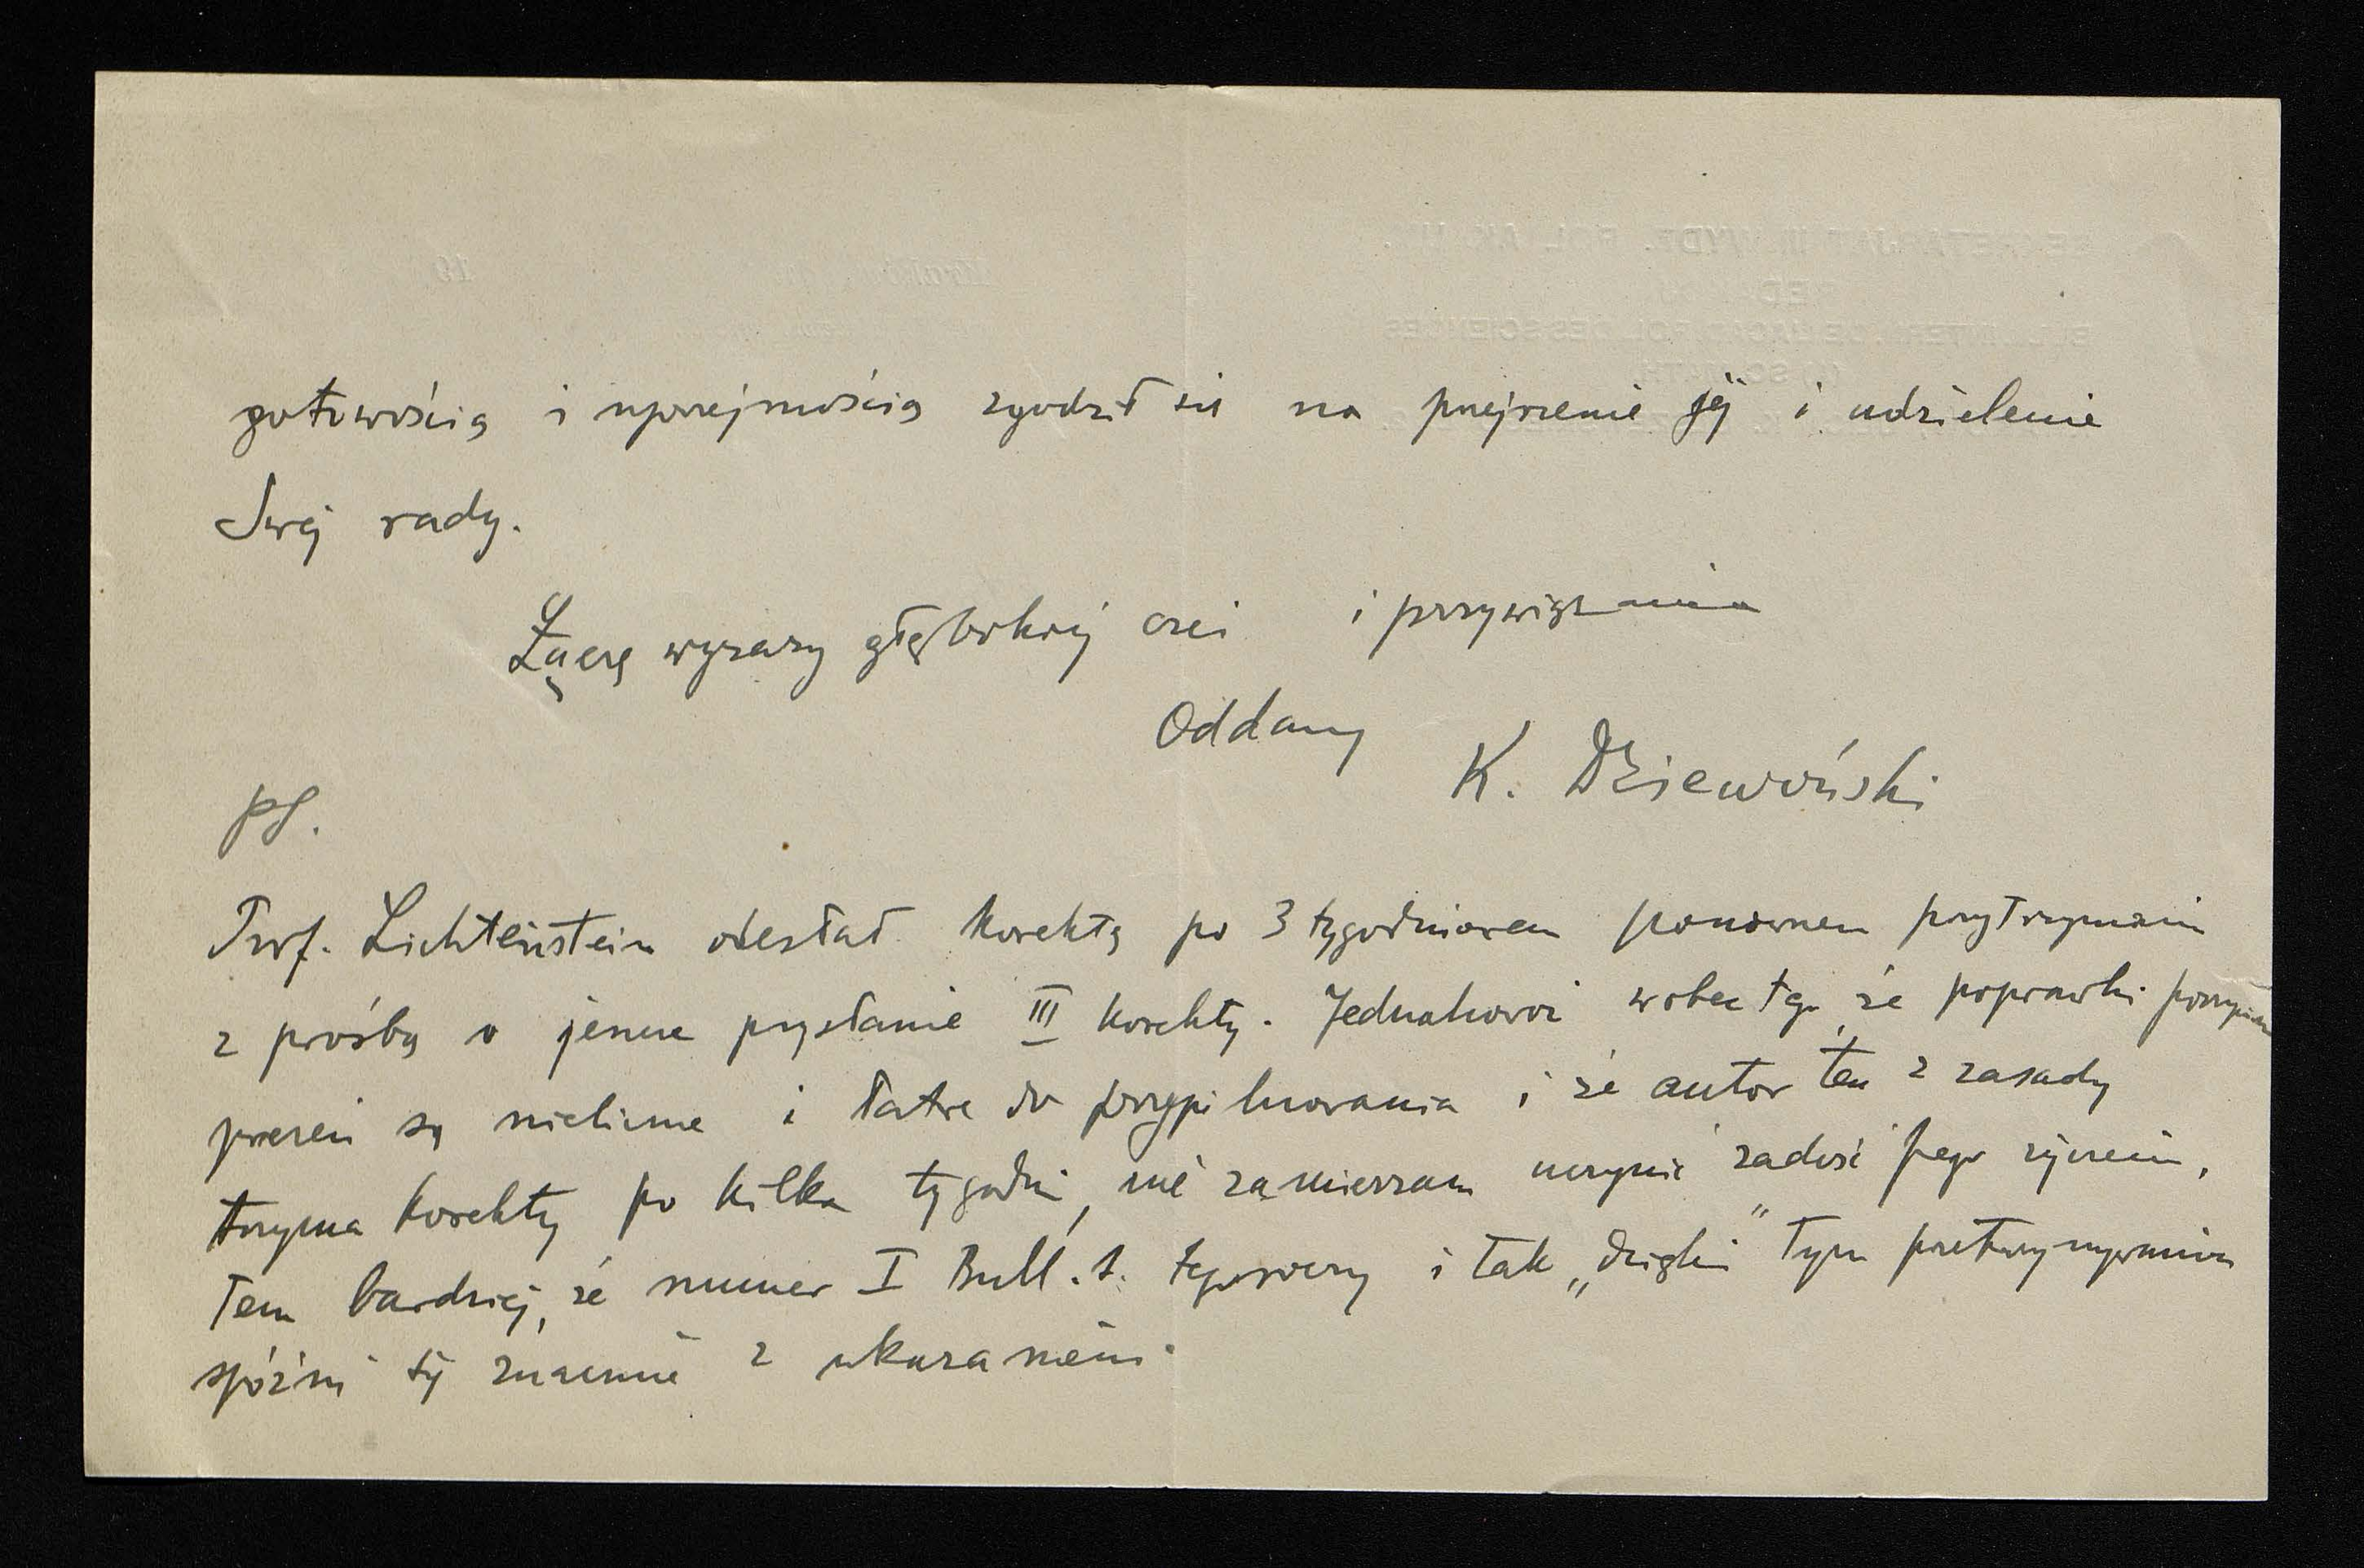 gotowością i uprzejmością zgodził się na przejrzenie jej i udzielenie
Swej rady.
Łączę wyrazy głębokiej czci i przywiązania
Oddany K. Dziewoński
PS.
Prof. Lichtenstein odesłał korektę po 3 tygodniowem ponownem przytrzymaniu
z prośbą o jeszcze przysłanie III korekty. Jednakowoż wobec tego, że poprawki
przezeń są nieliczne i łatwe do przypilnowania i że autor ten z zasady
trzyma korekty po kilka tygodni, nie zamierzam uczynić zadość jego życzeniu,
tem bardziej, że numer I Bull. t. tegoroczny i tak „dzięki” tym przetrzymywaniom
spóźni się znacznie z ukazaniem.